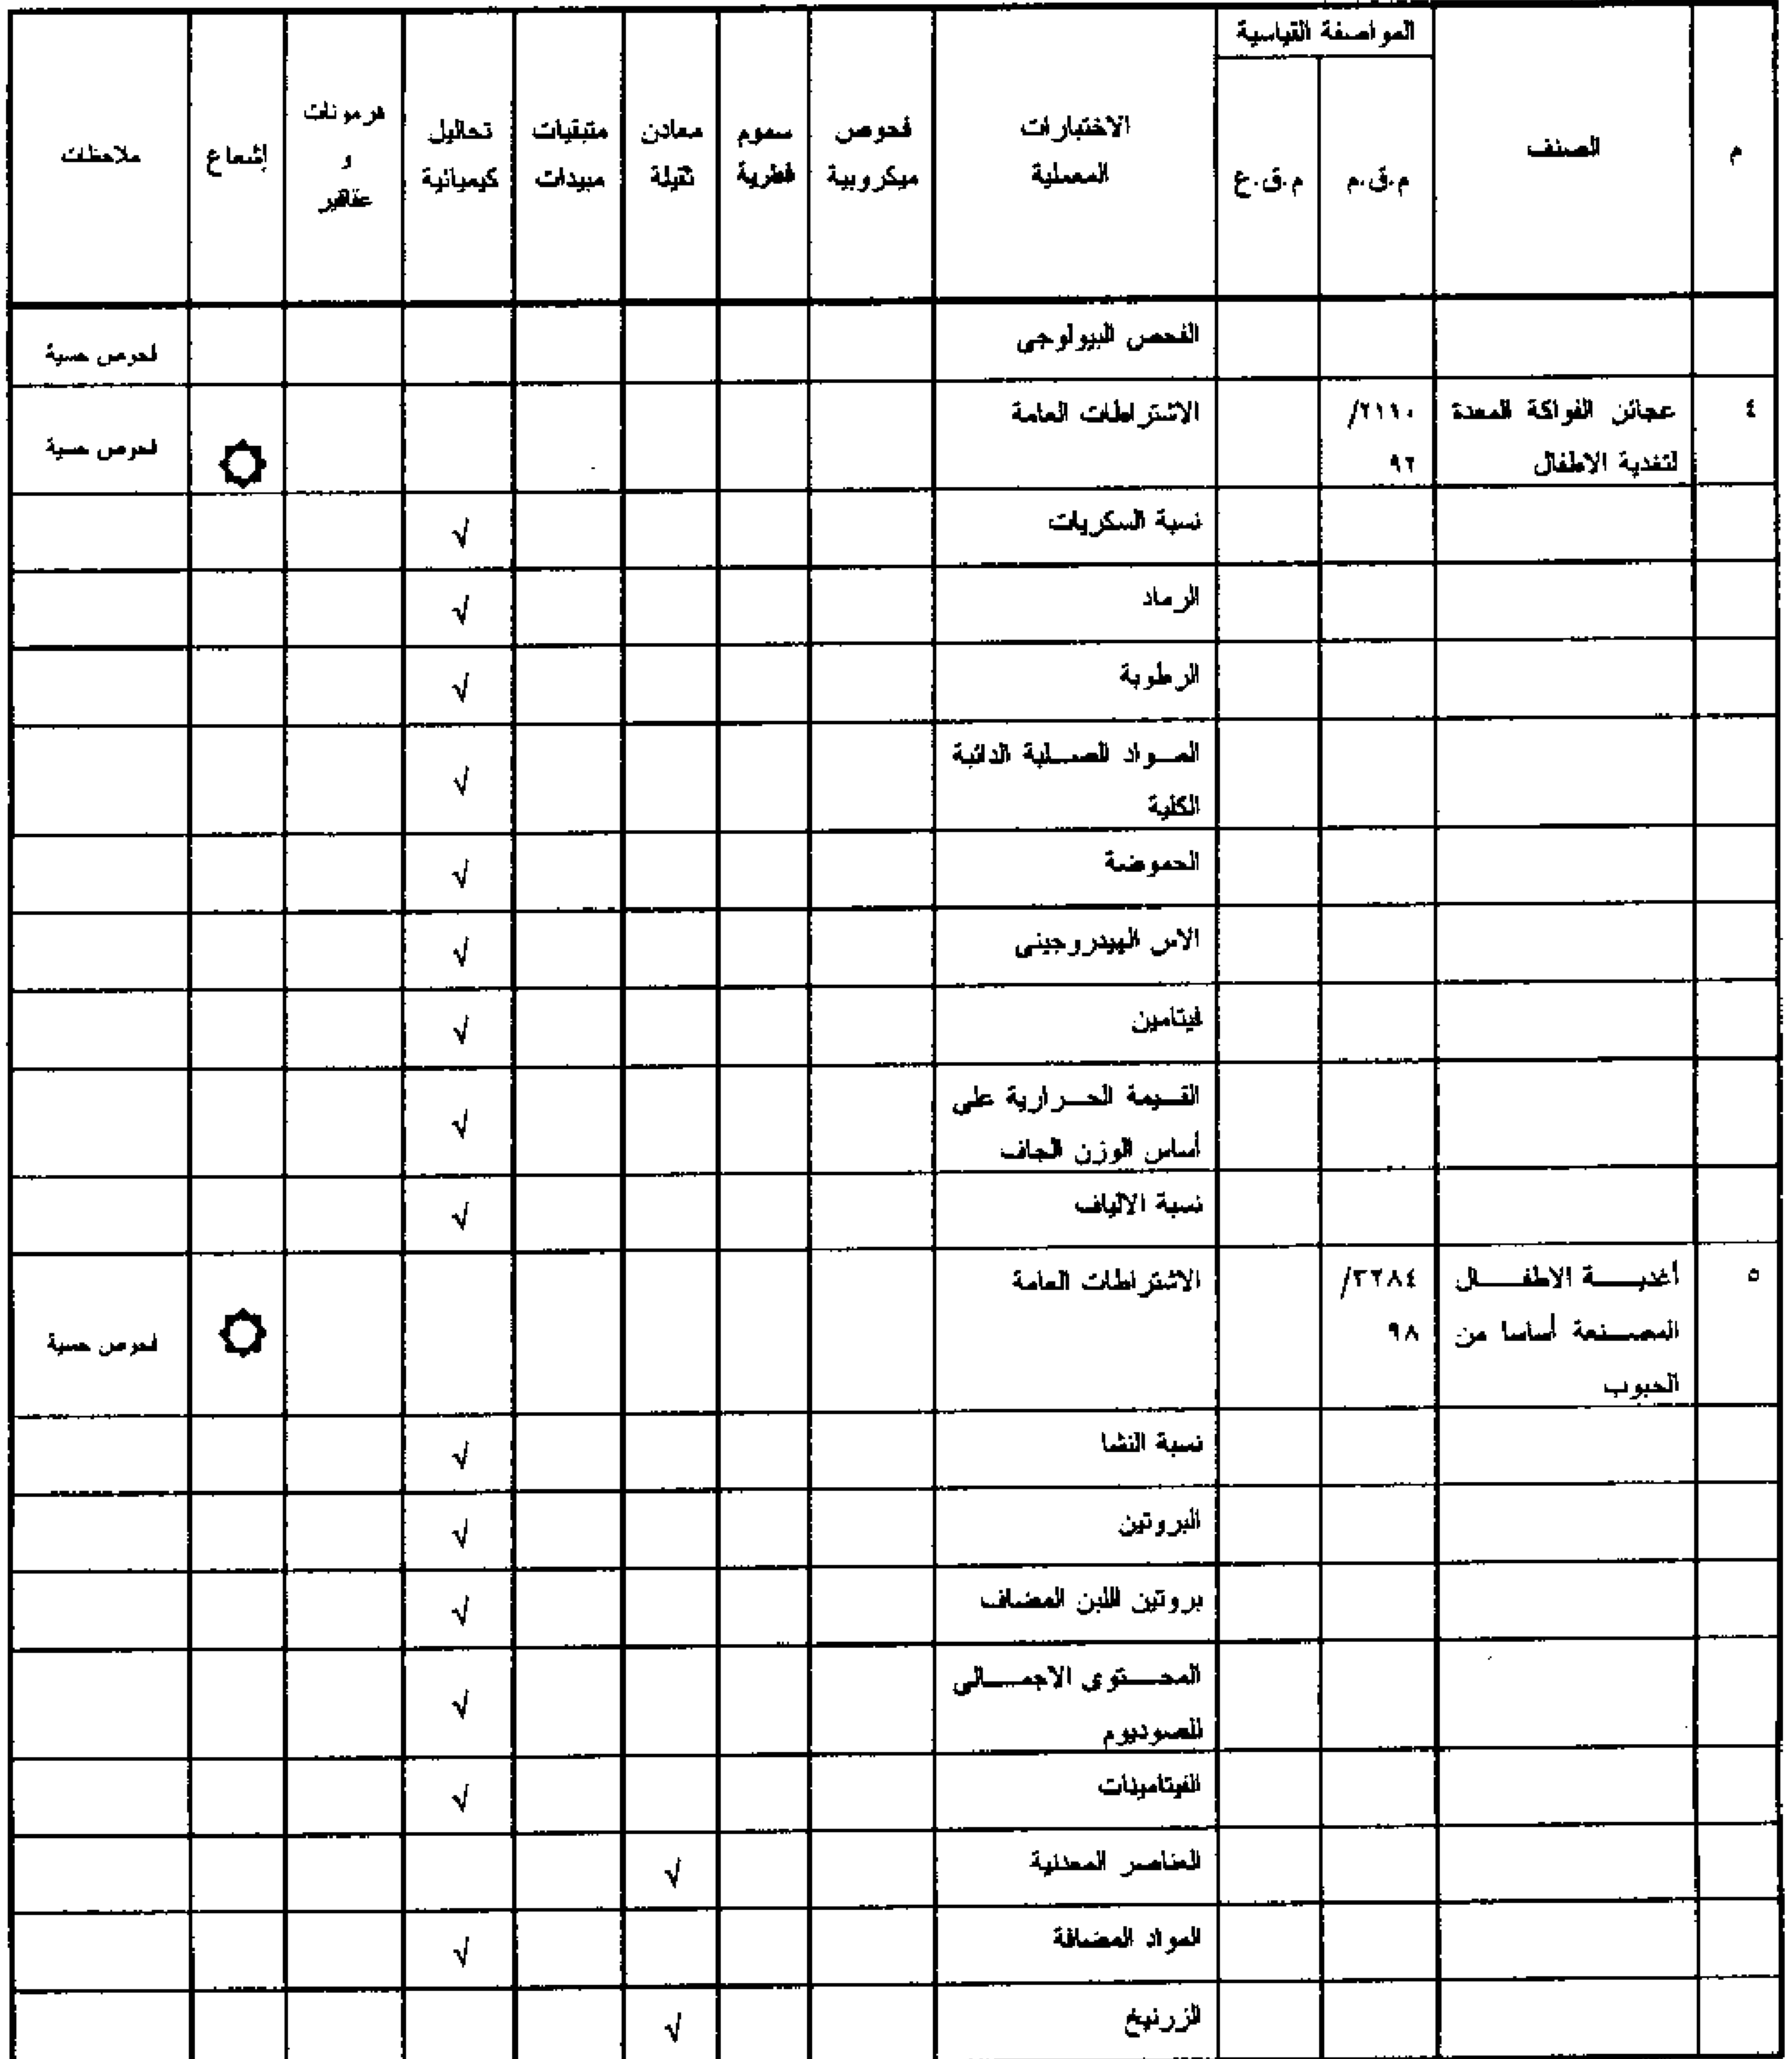 المواصفة القياسية
م
الصنف
م.ق.م
م.ق.ع
الاختبارات
المعملية
فحوص
ميكروبية
سموم
فطرية
معادن
ثقيلة
متبقيات
مبيدات
تحاليل
كيميائية
هرمونات
و
عقاقير
إشعاع
ملاحظات
الفحص البيولوجى
فحوص حسية
٤
عجائن الفواكة المعدة
لتغدية الاطفال
٢١١٠/
٩٢
الاشتراطات العامة
فحوص حسية
نسبة السكريات √
الرماد √
الرطوبة √
المــواد الصــلبة الدائبة
الكلية √
الحموضة √
الاس الهيدروجينى √
فيتامين √
القــيمة الحــرارية على
أساس الوزن الجاف √
نسبة الالياف √
٥
أغديــــة الاطفــــال
المصــنعة أساسا من
الحبوب
٣٢٨٤/
٩٨
الاشتراطات العامة
فحوص حسية
نسبة النشا √
البروتين √
بروتين اللبن المضاف √
المحــــتوى الاجمــــالى
للصوديوم √
الفيتامينات √
العناصر المعدنية √
المواد المضافة √
الزرنيخ √